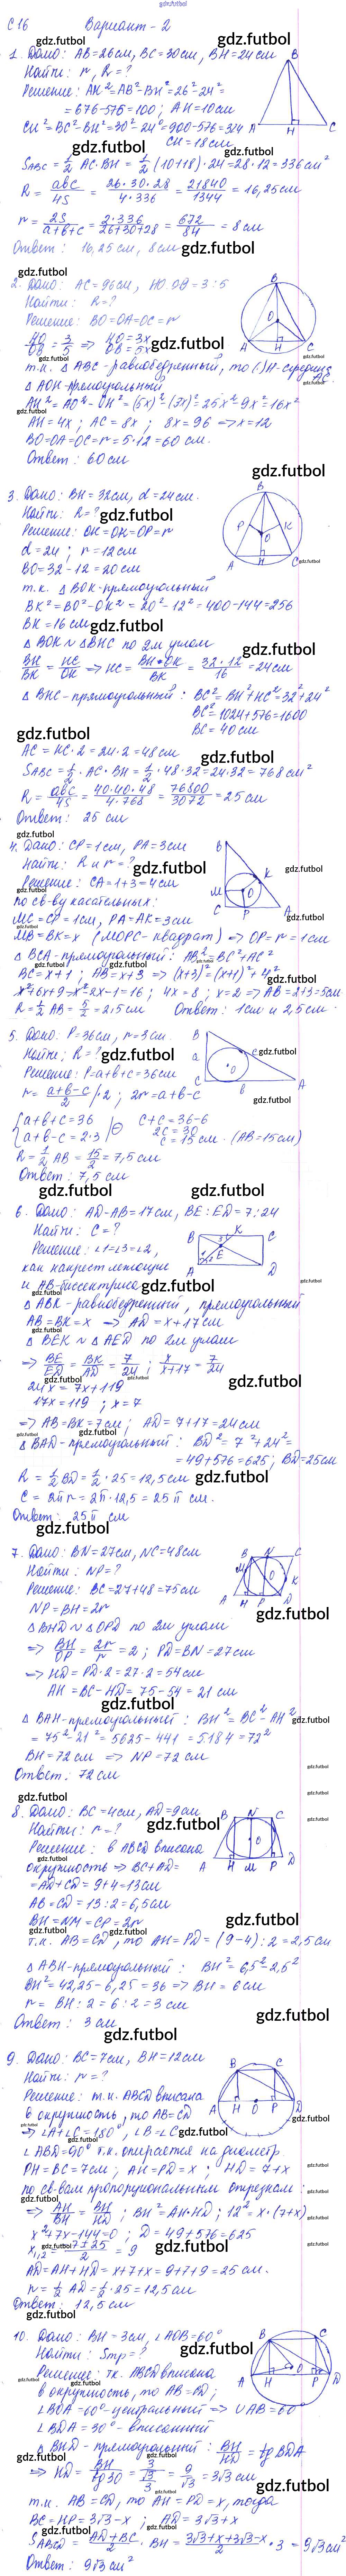 gdz.futbol
С16 Вариант - 2
gdz.futbol gdz.futbol
1. Дано: AB=26см, BC=30см, BH=24см
Найти: r, R = ?
Решение: AH²=AB²-BH²=26²-24²=
gdz.futbol
= 676-576=100; AH=10см
CH²=BC²-BH²=30²-24²=900-576=324
CH=18см
gdz.futbol gdz.futbol
S_ABC = 1/2 AC·BH = 1/2 (10+18)·24=28·12=336см²
R = abc/4S = 26·30·28/4·336 = 21840/1344 = 16,25см
r = 2S/a+b+c = 2·336/26+30+28 = 672/84 = 8см
Ответ: 16,25см, 8см
gdz.futbol
gdz.futbol
2. Дано: AC=96см, HO:OB=3:5
Найти: R=?
Решение: BO=OA=OC=r
HO/OB = 3/5 ⇒ HO=3x OB=5x
gdz.futbol
т.к. △ABC-равнобедренный, то (·)H-середина AC
△AOH-прямоугольный
AH²=AO²-OH²=(5x)²-(3x)²=25x²-9x²=16x²
AH=4x; AC=8x; 8x=96 ⇒ x=12
BO=OA=OC=r=5·12=60см.
Ответ: 60см
gdz.futbol
3. Дано: BH=32см, d=24см.
Найти: R=?
gdz.futbol
Решение: OH=OK=OP=r
d=24; r=12см
BO=32-12=20см
т.к. △BOK-прямоугольный
BK²=BO²-OK²=20²-12²=400-144=256
BK=16см
gdz.futbol
△BOK ~ △BHC по 2м углам
BH/BK = HC/OK ⇒ HC = BH·OK/BK = 32·12/16 = 24см
gdz.futbol
△BHC-прямоугольный: BC²=BH²+HC²=32²+24²
BC²=1024+576=1600
BC=40см
gdz.futbol
AC=HC·2=24·2=48см
gdz.futbol
S_ABC=1/2·AC·BH=1/2·48·32=24·32=768см²
R = abc/4S = 40·40·48/4·768 = 76800/3072 = 25см
Ответ: 25см
gdz.futbol
4. Дано: CP=1см, PA=3см
Найти: R и r=?
gdz.futbol gdz.futbol
Решение: CA=1+3=4см
по св-ву касательных:
MC=CP=1см, PA=AK=3см
MB=BK=x (MOPC-квадрат) ⇒ OP=r=1см
△BCA-прямоугольный: AB²=BC²+AC²
BC=x+1; AB=x+3 ⇒ (x+3)²=(x+1)²+4²
gdz.futbol
x²+6x+9-x²-2x-1=16; 4x=8; x=2 ⇒ AB=2+3=5см
R=1/2 AB=5/2=2,5см Ответ: 1см и 2,5см.
gdz.futbol
5. Дано: P=36см, r=3см.
Найти: R=?
gdz.futbol gdz.futbol
Решение: P=a+b+c=36см
r= a+b-c/2 /·2; 2r=a+b-c
gdz.futbol
{a+b+c=36 a+b-c=2·3 |⊖ c+c=36-6
2c=30
c=15см. (AB=15см)
R=1/2 AB=15/2=7,5см
Ответ: 7,5см
gdz.futbol gdz.futbol
6. Дано: AD-AB=17см, BE:ED=7:24
Найти: C=?
Решение: ∠1=∠3=∠2,
как накрест лежащие
и AB-биссектриса
gdz.futbol
△ABK-равнобедренный, прямоугольный
AB=BK=x ⇒ AD=x+17см
△BEK ~ △AED по 2м углам
⇒ BE/ED = BK/AD = 7/24; x/x+17 = 7/24
gdz.futbol
24x=7x+119
17x=119; x=7
⇒ AB=BK=7см; AD=7+17=24см
△BAD-прямоугольный: BD²=7²+24²=
=49+576=625; BD=25см
R=1/2 BD=1/2·25=12,5см
gdz.futbol
C=2πr=2π·12,5=25π см.
Ответ: 25π см
gdz.futbol
7. Дано: BN=27см, NC=48см
Найти: NP=?
Решение: BC=27+48=75см
NP=BH=2r
gdz.futbol
△BHD ~ △OPD по 2м углам
⇒ BH/OP = 2r/r = 2; PD=BN=27см
⇒ HD=PD·2=27·2=54см
AH=BC-HD=75-54=21см
gdz.futbol
△BAH-прямоугольный: BH²=BC²-AH²
gdz.futbol
=75²-21²=5625-441=5184=72²
BH=72см ⇒ NP=72см
Ответ: 72см
gdz.futbol
8. Дано: BC=4см, AD=9см
Найти: r=?
gdz.futbol
Решение: в ABCD вписана
окружность ⇒ BC+AD=
=AB+CD=9+4=13см
AB=CD=13:2=6,5см
BH=NM=CP=2r
gdz.futbol
т.к. AB=CD, то AH=PD=(9-4):2=2,5см
△ABH-прямоугольный: BH²=6,5²-2,5²
BH²=42,25-6,25=36 ⇒ BH=6см
r=BH:2=6:2=3см
gdz.futbol
Ответ: 3см
gdz.futbol
9. Дано: BC=7см, BH=12см
Найти: r=?
Решение: т.к. ABCD вписана
в окружность, то AB=CD
gdz.futbol
⇒ ∠A+∠C=180°, ∠B=∠C
gdz.futbol
∠ABD=90° т.к. опирается на диаметр
PH=BC=7см; AH=PD=x; HD=7+x
по св-вам пропорциональным отрезкам:
⇒ AH/BH = BH/HD; BH²=AH·HD; 12²=x·(7+x)
x²+7x-144=0; D=49+576=625
x₁,₂ = -7±25/2 = 9
AD=AH+HD=x+7+x=9+7+9=25см.
r=1/2 AD=1/2·25=12,5см
Ответ: 12,5см
gdz.futbol
10. Дано: BH=3см, ∠AOB=60°
Найти: Sтр=?
gdz.futbol
Решение: т.к. ABCD вписана
в окружность, то AB=CD;
∠BOA=60°-центральный ⇒ ∪AB=60°
∠BDA=30°-вписанный
△BHD-прямоугольный: BH/HD = tg BDA
gdz.futbol
⇒ HD = BH/tg30 = 3/(√3/3) = 9/√3 = 3√3 см
gdz.futbol
т.к. AB=CD, то AH=PD=x, тогда
BC=HP=3√3-x; AD=3√3+x
gdz.futbol
S_ABCD = AD+BC/2 · BH = 3√3+x+3√3-x/2 · 3 = 9√3см²
Ответ: 9√3см²
gdz.futbol